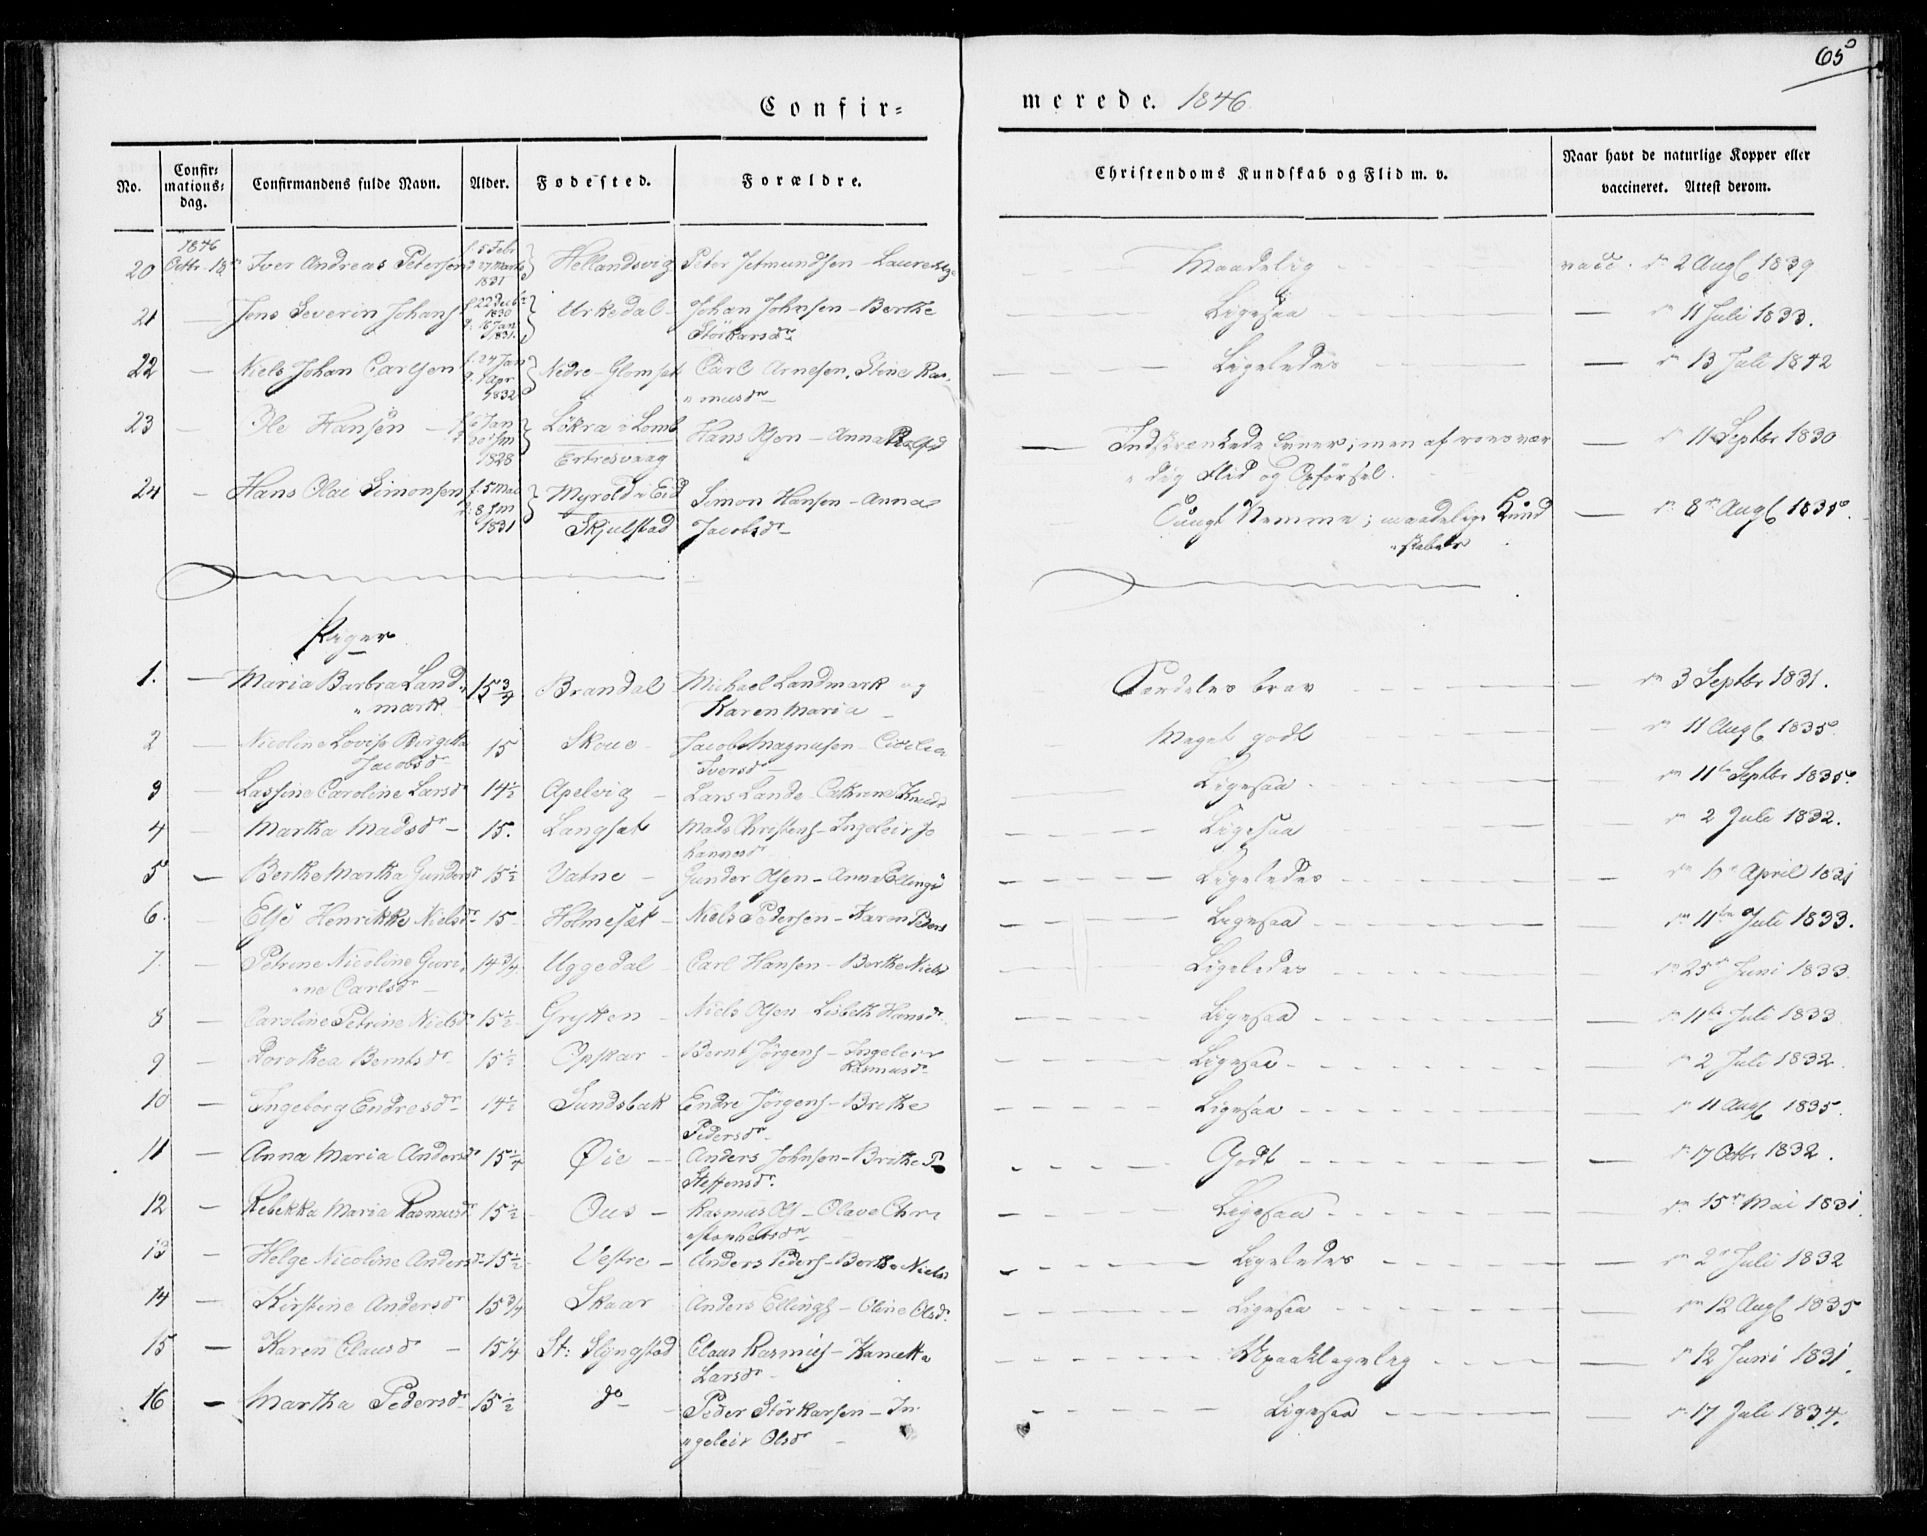 65
Confir= merede. 1846
No. Confir=mations=dag. Confirmandens fulde Navn. Alder. Fødested. Forældre. Christendoms Kundskab og Flid m. v. Naar havt de naturlige Kopper eller vaccineret. Attest derom.
1846
20 Octbr 18 Iver Andreas Petersen f. 5 Febr 27 Marts 1831 Hellandsvig Peter Jetmundsen - Maadelig vacc. dn 2 Augs 1839
21 — Jens Severin Johans f. 22 Decbr 1830 d. 16 Jan 1831 Urkedal Johan Johnsen - Berthe Störkarsdr Ligesaa — dn 11 Juli 1833.
22 — Niels Johan Carlsen f. 24 Jan d. 1 Apr 1832 Nedre-Glomset Carl Arnesen, Stine Ras„musdr Ligeledes — dn 13 Juli 1842
23 — Ole Hansen 6 Jan 20 s.m. 1828 Løkra i Lomb Ertresvaag Hans Olsen - Anna Indskrænkede Evner; men af roesvær„dig Flid og Opførsel. — dn 11 Septbr 1830
24 — Hans Olai Simonsen f. 5 Mai d. 8 s.m. 1831 Myrold i Eid Skjulstad Simon Hansen - Anna Jacobsdr Tungt Nemme; maadelige Kund„skaber — dn 8de Augs 1835.
Piger
1. — Maria Barbra Land„mark 15 3/4 Brandal Michael Landmark og Karen Maria Særdeles brav — dn 3 Septbr 1831.
2 Nicoline Lovise Birgitte Jacobsdr 15 Skoue Jacob Magnusen - Cicilia Iversdr Meget godt — dn 11 Augs 1835.
3 — Lassine Caroline Larsdr 14 1/2 Apelvig Lars Lande - Cathrine Knudsd Ligesaa dn 11te Septbr 1835
4 — Martha Madsdr 15. Langset Mads Christens - Ingeleir Johannesdr Ligesaa dn 2 Juli 1832.
5 — Berthe Martha Gundersdr 15 1/2 Vatne Gunder Olsen - Anna Ellingsd Ligeledes — April 1831
6. — Else Henrikke Nielsdr 15 Holmeset Niels Pedersen - Karen Peders Ligesaa dn 11te Juli 1833.
7. — Petrine Nicoline Guri„ne Carlsdr 14 3/4 Uggedal Carl Hansen - Berthe Niels Ligeledes dn 25de Juni 1833.
8 — Caroline Petrine Nielsdr 15 1/2 Grytten Niels Olsen - Lisbeth Hansdr Ligesaa — dn 11te Juli 1833
9 — Dorothea Berntsdr 15 1/2 Opskar Bernt Jørgens - Ingeleir Rasmusdr Ligesaa dn 2 Juli 1832.
10 — Ingeborg Endresdr 14 1/2 Sundsbak Endre Jørgens - Brithe Pedersdr Ligesaa dn 11 Augs 1835.
11 — Anna Maria Andersdr 15 1/4 Øie Anders Johnsen - Brithe Steffensdr. Godt dn 17 Octbr 1832.
12 — Rebekka Maria Rasmusdr 15 1/2 Ous Rasmus Ols - Olave Chri„stophersdr Ligesaa dn 15de Mai 1831.
13 — Helge Nicoline Andersdr 15 1/2 Vestre Anders Peders - Berthe Niels Ligeledes dn 2de Juli 1832
14 — Kirstine Andersdr 15 3/4 Skaar Anders Ellings - Oline Olsdr. Ligesaa dn 12 Augs 1835
15 — Karen Clausdr 15 1/4 St: Slyngstad Claus Rasmus - Larsdr Upaaklagelig — dn 12 Juni 1831.
16 — Martha Pedersdr 15 1/2 do Peder Störkarsen - In„geleir Olsdr Ligesaa — dn 17 Juli 1834.